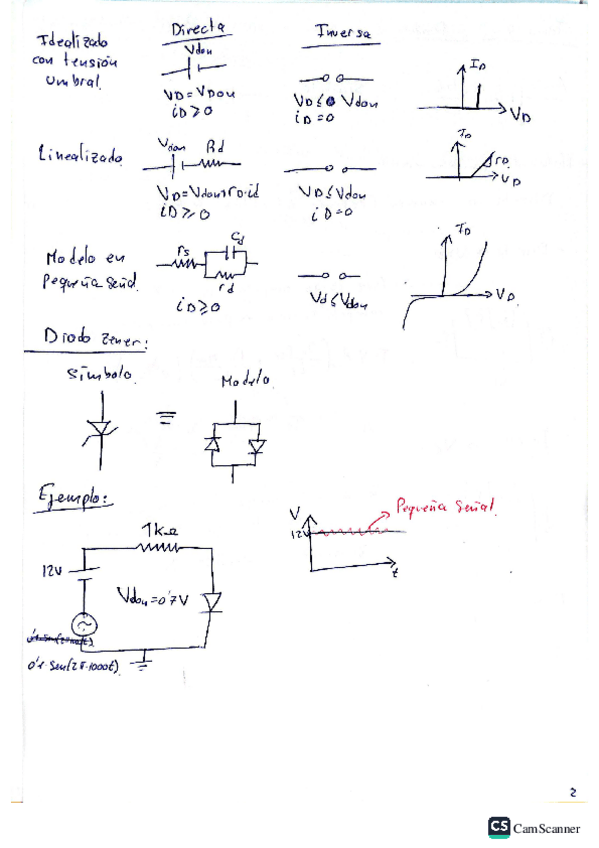 Directa
Inversa
Idealizado
con tensión
umbral.
Vdon
VD=VDon
iD≥0
VD≤ Vdon
iD=0
ID
VD
Linealizado
Vdon Rd
VD=Vdon+rD·id
iD≥0
VD≤Vdon
iD=0
ID
rD
VD
Modelo en
Pequeña señal
rs
Cd
rd
iD≥0
Vd≤Vdon
ID
VD
Diodo zener:
Símbolo
Modelo
≡
Ejemplo:
1kΩ
12V
Vdon=0'7V
0'1·sen(2π·1000t)
V
12V
t
Pequeña señal
2
CS CamScanner